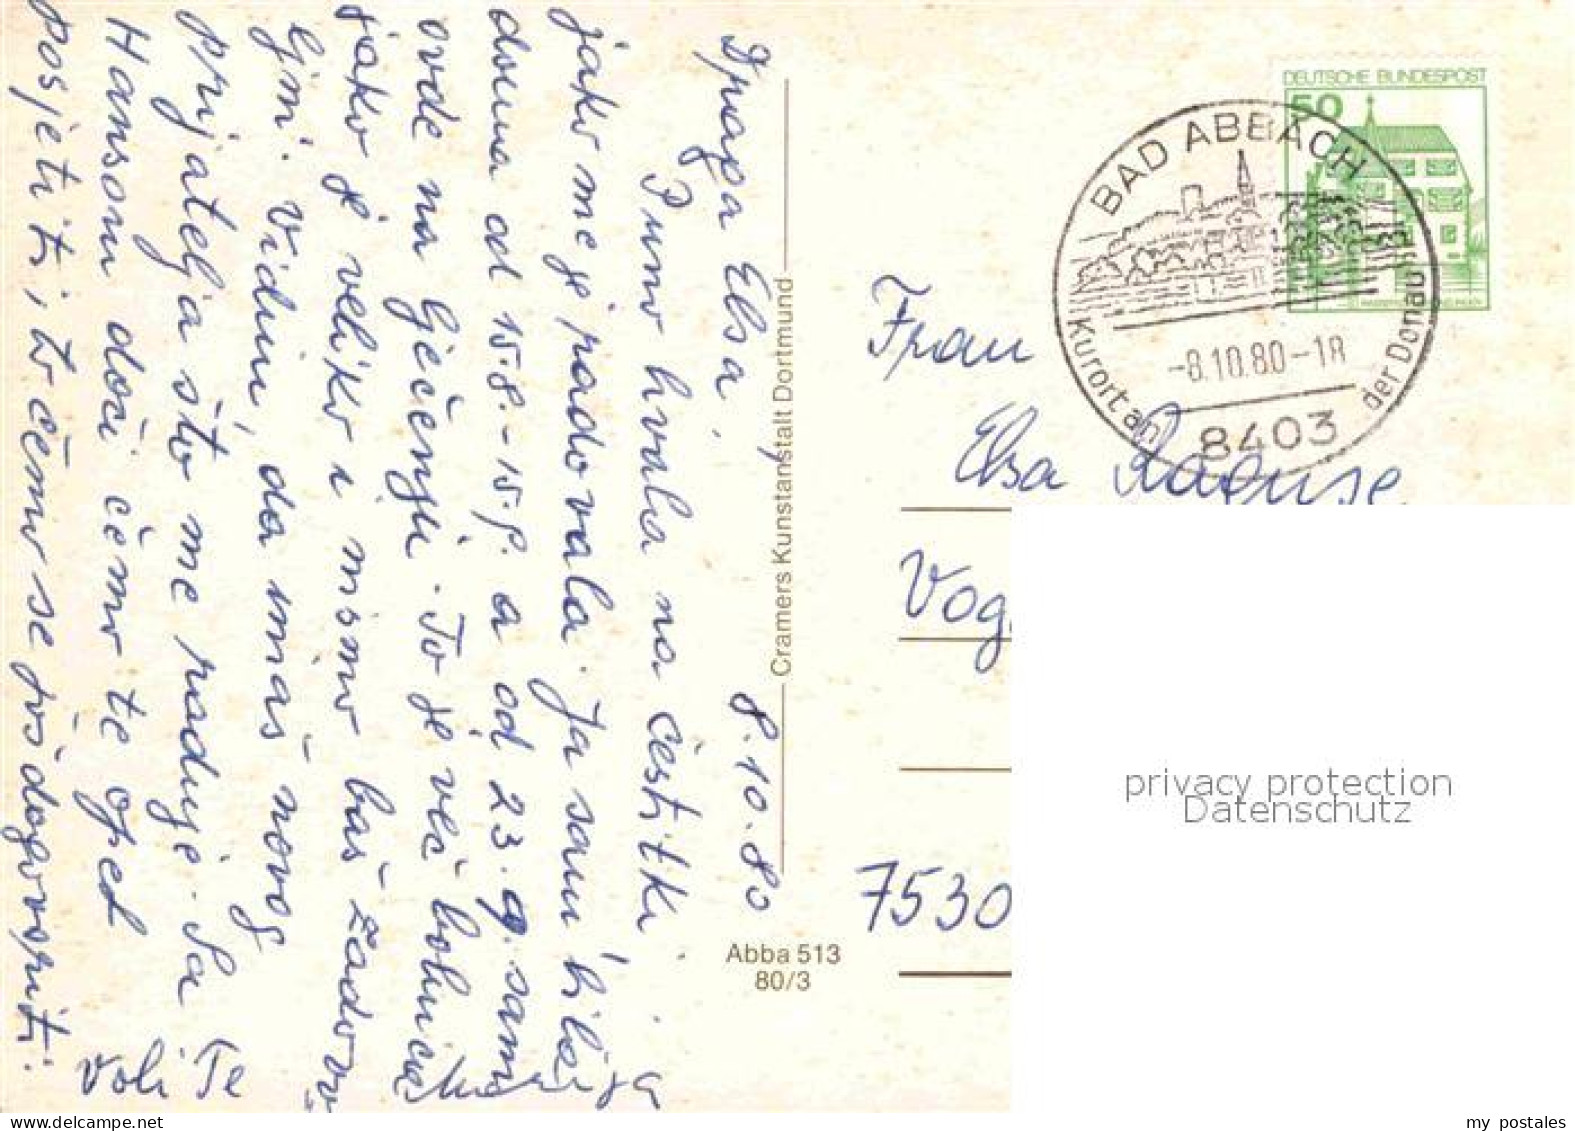 Draga Elsa,
8.10.80
Puno hvala na čestitki.
jako me je radovala. Ja sam bila
doma od 15.8.-15.9. a od 23.9. sam
ovde na lječenju. To je već bolnica
jako je veliko i nismo baš zadovo
ljni. Vidim, da imaš novog
prijatelja što me raduje. Sa
Hansom doći ćemo te opet
posjetiti, to ćemo se još dogovoriti.
Voli Te
Cramers Kunstanstalt Dortmund
Abba 513
80/3
DEUTSCHE BUNDESPOST
50
BAD ABBACH
-8.10.80-18
Kurort an der Donau
8403
Frau
Elsa
Vog
7530
privacy protection
Datenschutz
my postales